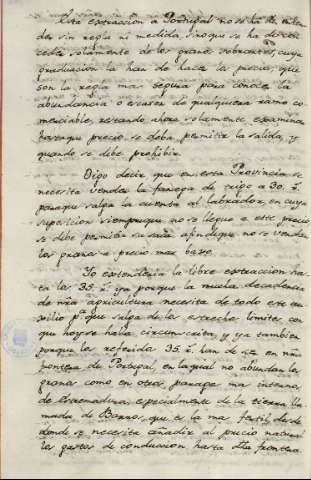 Esta extraccion a Portugal no se ha de enten
der sin regla ni medida, sino que se ha de con
ceder solamente de los granos sobrantes, cuya
graduacion la han de hacer los precios, que
son la regla mas segura para conocer la
abundancia o escasez de qualquiera ramo co
merciable, restando ahora solamente examinar
hasta que precio se deba permitir la salida, y
quando se debe prohibir.
Oigo decir que en esta Provincia se
necesita vender la fanega de trigo a 30. r.s
para que salga la cuenta al Labrador, en cuya
suposicion siempre que no se llegue a este precio
se debe permitir su saca afin de que no se vendan
los granos a precio mas baxo.
Yo estenderia la libre extraccion has
ta los 35. r.s ya porque la mucha decadencia
de nra agricultura necesita de todo este au
xilio p.a que salga de los estrechos limites con
que hoy se halla circunscrita, y ya tambien
porque los referidos 35. r.s han de ser en nra
frontera de Portugal, en la qual no abundan los
granos como en otros parages mas internos
de Extremadura, especialmente de la tierra lla
mada de Barros, que es la mas fertil, desde
donde se necesita añadir al precio natural
los gastos de conduccion hasta dha frontera.